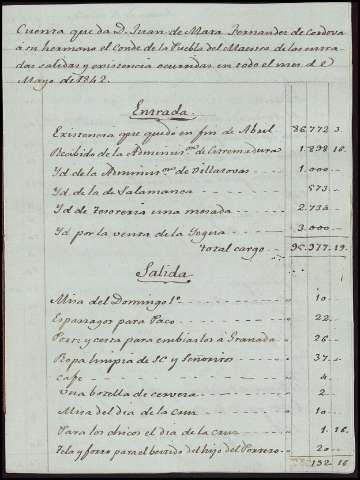 Cuenta que da D. Juan de Mata Fernandez de Cordova
á su hermano el Conde de la Puebla del Maestre de las entra
das salidas y existencia ocurridas en todo el mes de
Mayo de 1842.
Entrada.
Existencia que quedó en fin de Abril 86.772 3.
Recibido de la Adminis.on de Estremadura 1.898 16.
Yd de la Adminis.on de Villatovas 1.000
Yd de la de Salamanca 573
Yd de Tesoreria una mesada 2.733
Yd por la venta de la Yegua 3.000
Total cargo 95.977.19.
Salida.
Misa del Domingo 1º 10
Esparragos para Paco 22
Pez y cerza para embiarlos á Granada 26
Ropa limpia de SC y Señoritos 37
Cafe 4
Una botella de cerveza 2
Misa del dia de la Cruz 10
Para los chicos el dia de la cruz 1.16.
Tela y forro para el vestido del hijo del Portero 20
132.16